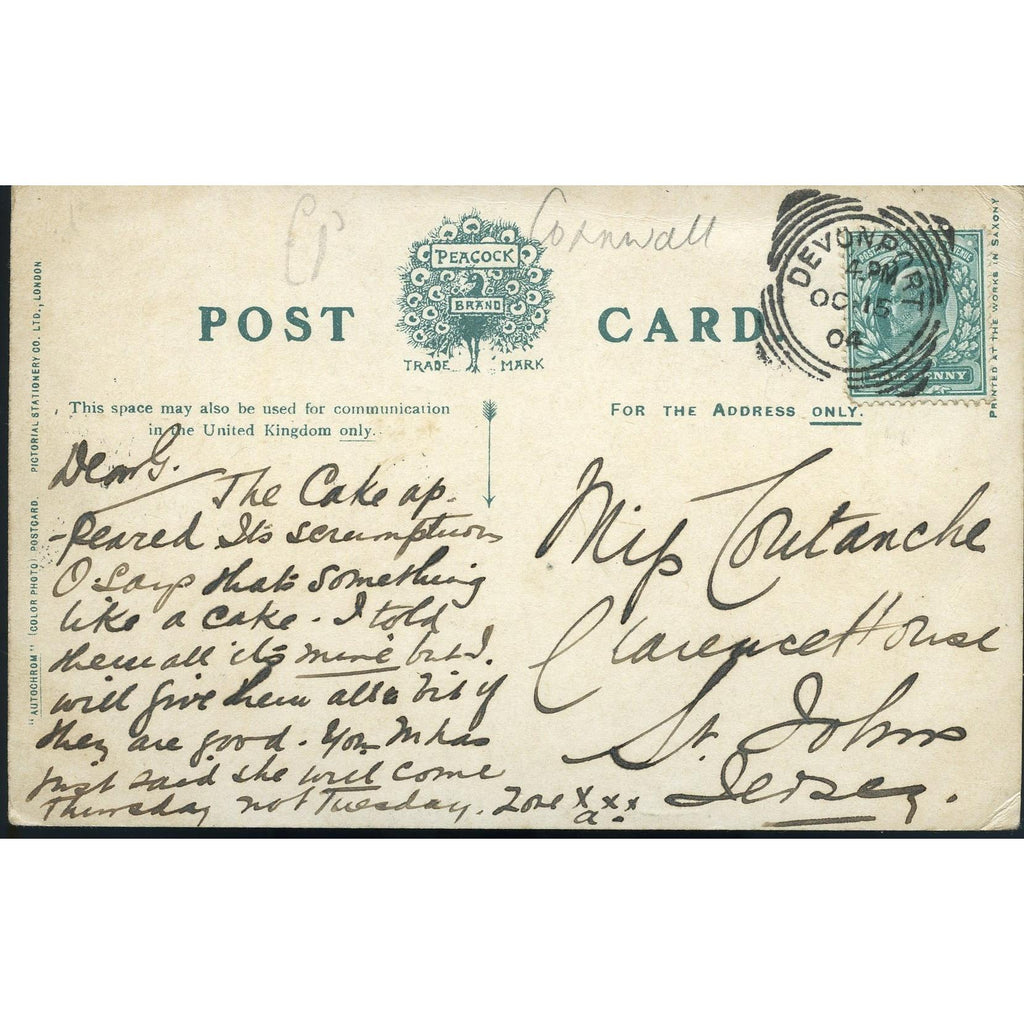 Cornwall
PEACOCK
BRAND
POST CARD.
TRADE MARK
DEVONPORT
4.PM
OC 15
04
This space may also be used for communication
in the United Kingdom only.
FOR THE ADDRESS ONLY.
"AUTOCHROM" (COLOR PHOTO) POSTCARD. PICTORIAL STATIONERY CO. LTD., LONDON
PRINTED AT THE WORKS IN SAXONY
Dear G.
The Cake ap-
-peared Its scrumptious
O Says that's something
like a cake. I told
them all its mine but I
will give them all a bit if
they are good. Your M has
just said she will come
Thursday not Tuesday. Love x x x
a.
Miss Coutanche
Clarence House
St. Johns
Jersey.